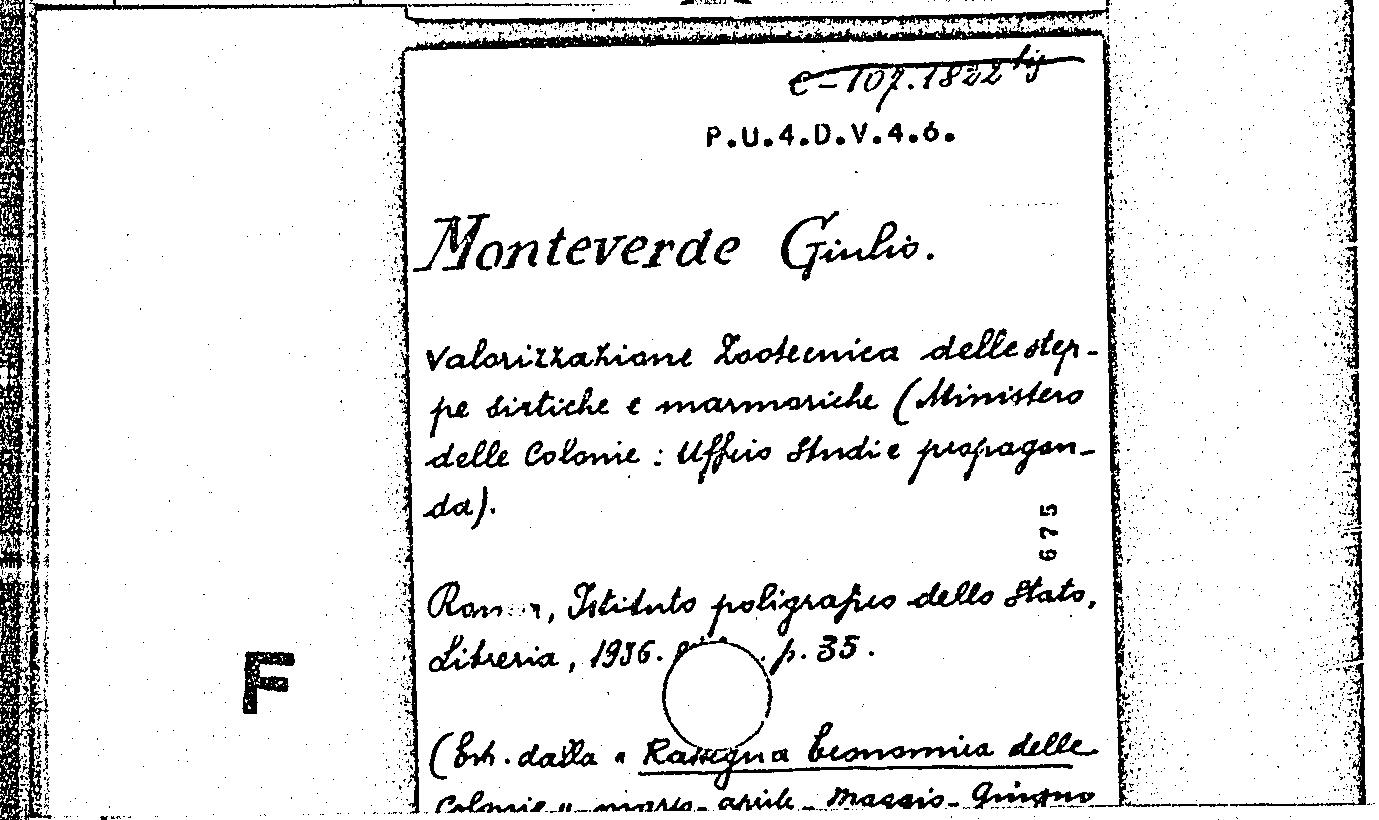 C-107.1822 bis
P.U.4.D.V.4.6.
Monteverde Giulio.
Valorizzazione Zootecnica delle step-
pe sirtiche e marmariche (Ministero
delle Colonie: Ufficio Studi e propagan-
da).
675
Istituto poligrafico dello Stato,
Libreria, 1936. p. 35.
F
(Estr. dalla "Rassegna Economica delle
Colonie" marzo-aprile-Maggio-Giugno